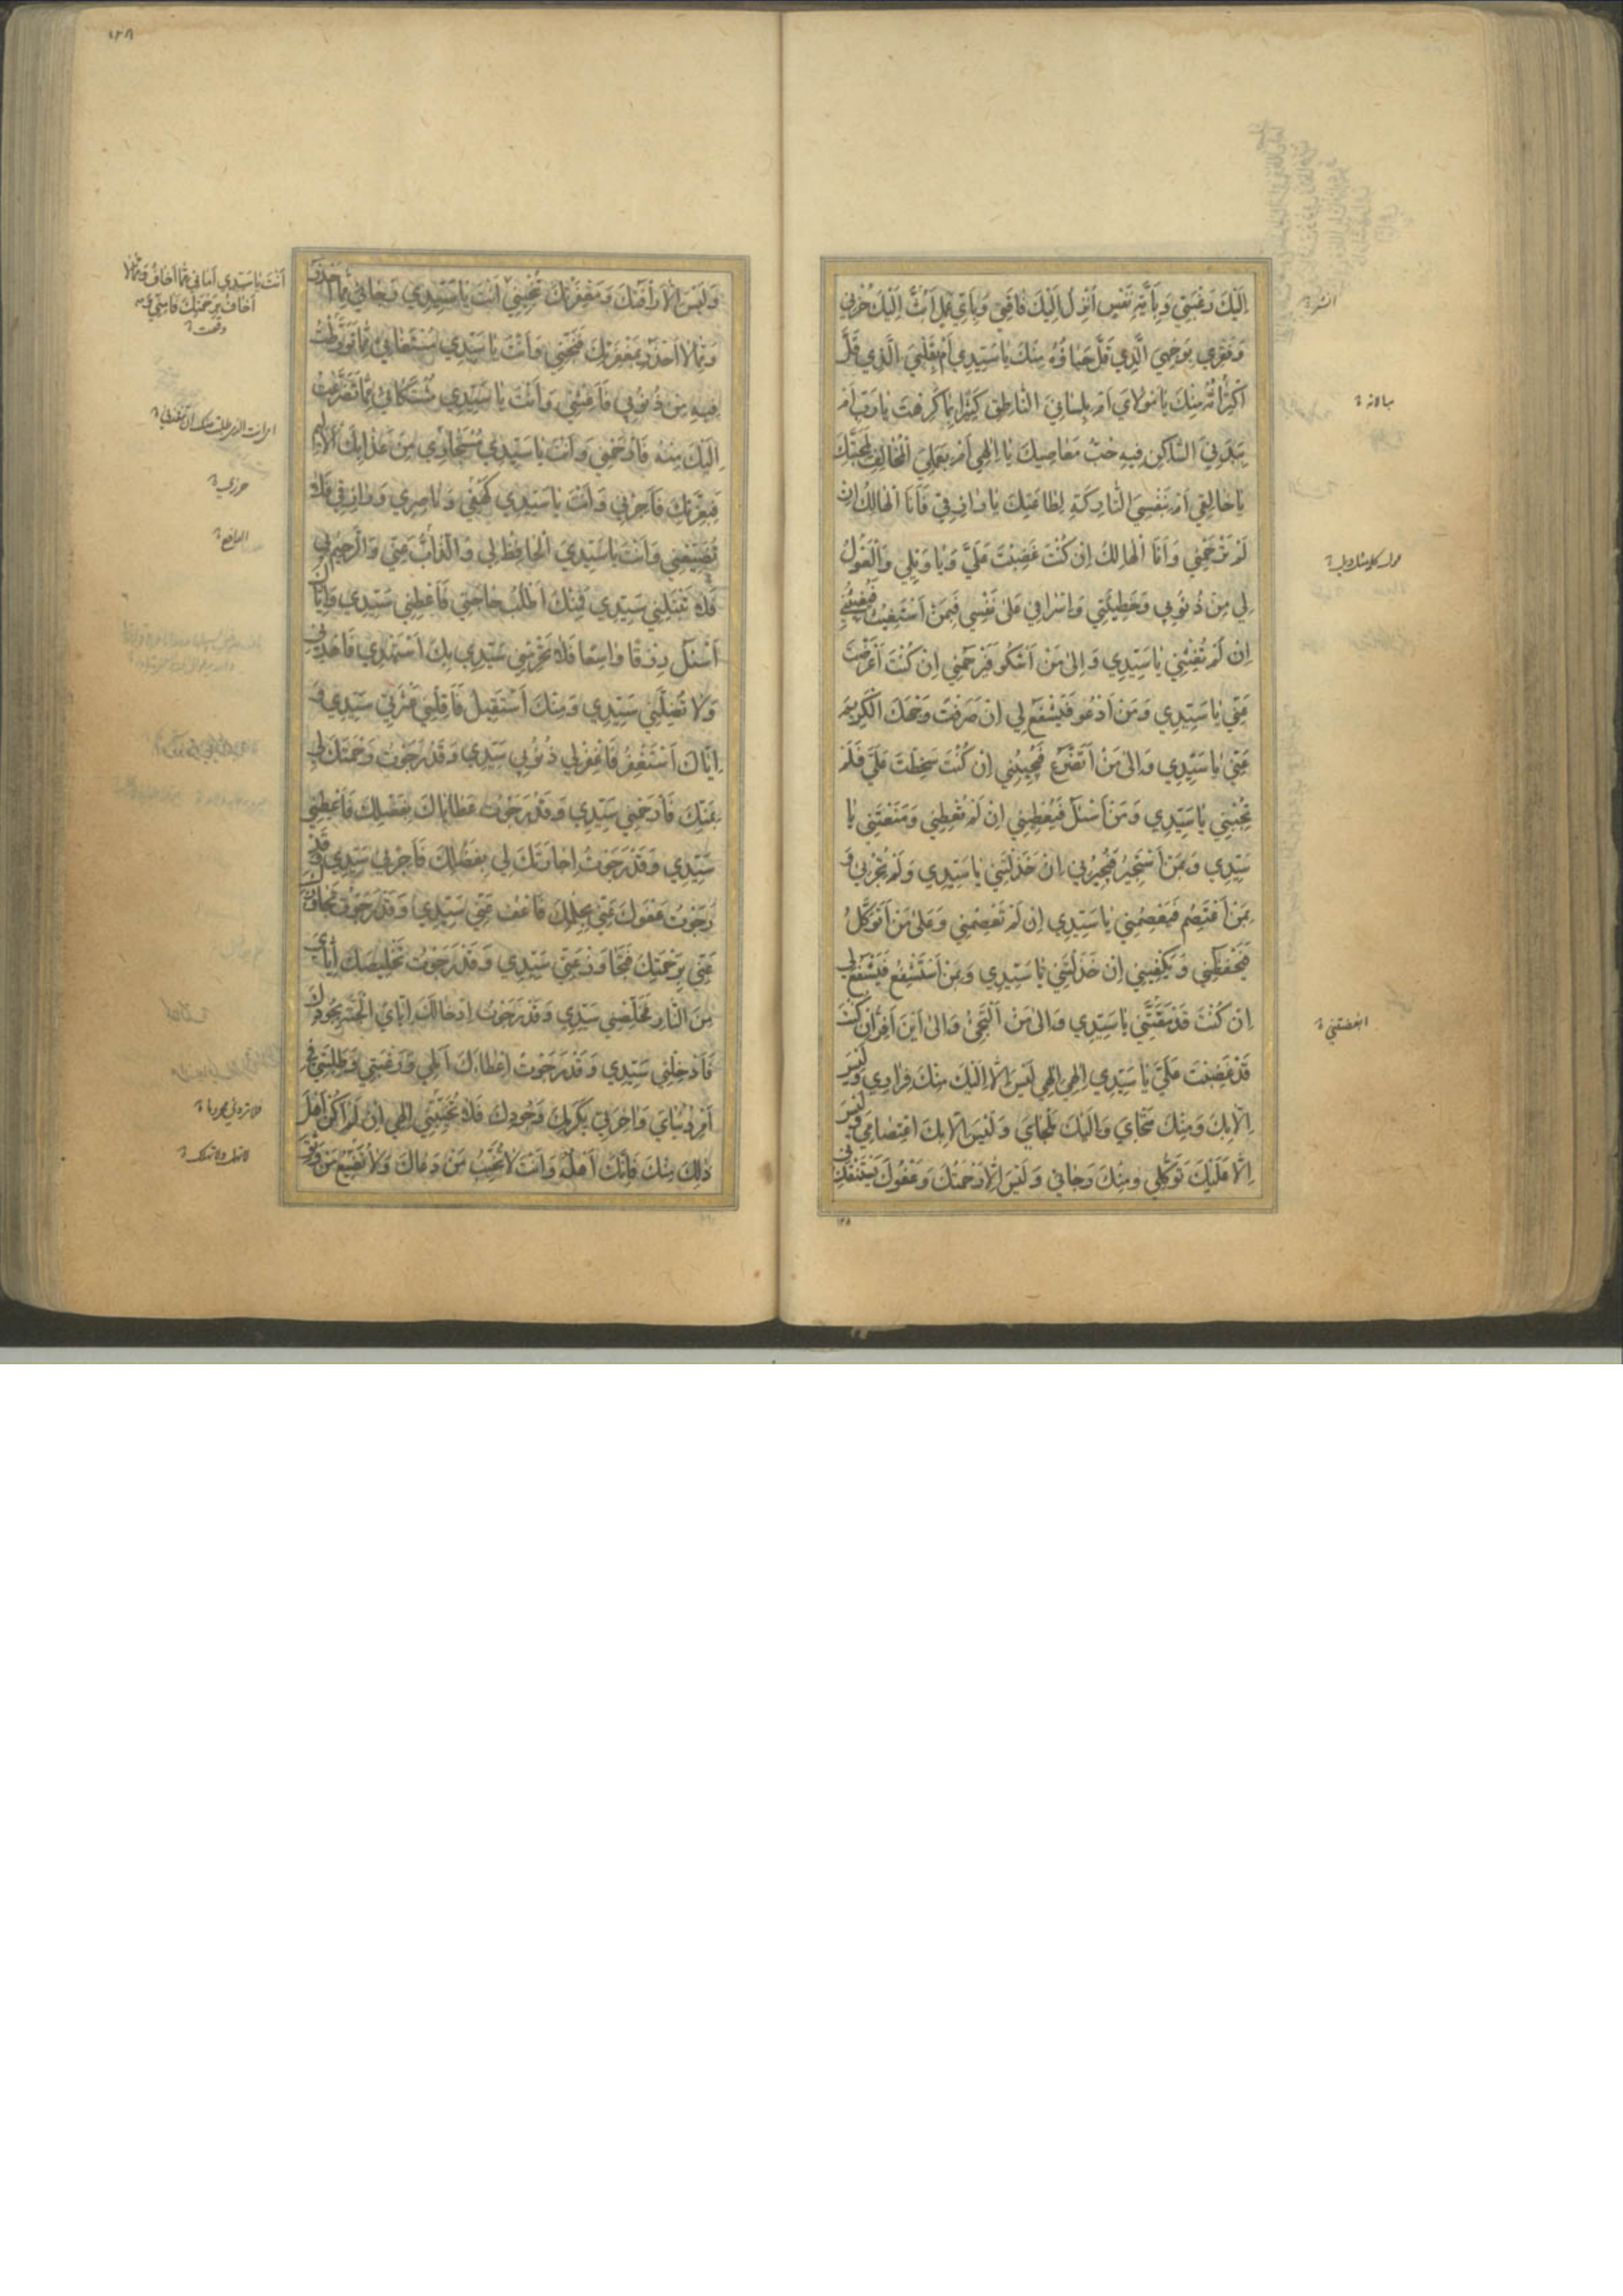 إِلَيْكَ رَغْبَتِي وَبِأَيَّةِ نَفْسٍ أُنْزِلُ إِلَيْكَ فَاقَتِي وَبِأَيِّ عَمَلٍ أَبُثُّ إِلَيْكَ حُزْنِي
وَفَقْرِي بِوَجْهِيَ الَّذِي قَلَّ حَيَاؤُهُ مِنْكَ يَا سَيِّدِي أَمْ بِقَلْبِيَ الَّذِي قَلَّ
اكْتِرَاثُهُ مِنْكَ يَا مَوْلَايَ أَمْ بِلِسَانِيَ النَّاطِقِ كَثِيرًا بِمَا كَرِهْتَ يَا رَبِّ أَمْ
بِبَدَنِيَ السَّاكِنِ فِيهِ حُبُّ مَعَاصِيكَ يَا إِلٰهِي أَمْ بِعَمَلِيَ الْمُخَالِفِ لِمَحَبَّتِكَ
يَا خَالِقِي أَمْ بِنَفْسِيَ التَّارِكَةِ لِطَاعَتِكَ يَا رَازِقِي فَأَنَا الْهَالِكُ إِنْ
لَمْ تَرْحَمْنِي وَأَنَا الْهَالِكُ إِنْ كُنْتَ غَضِبْتَ عَلَيَّ وَيَا وَيْلِي وَالْعَوْلُ
لِي مِنْ ذُنُوبِي وَخَطِيئَتِي وَإِسْرَافِي عَلَىٰ نَفْسِي فَبِمَنْ أَسْتَغِيثُ فَيُغِيثُنِي
إِنْ لَمْ تُغِثْنِي يَا سَيِّدِي وَإِلَىٰ مَنْ أَشْكُو فَيَرْحَمُنِي إِنْ كُنْتَ أَعْرَضْتَ
عَنِّي يَا سَيِّدِي وَمَنْ أَدْعُو فَيَشْفَعُ لِي إِنْ صَرَفْتَ وَجْهَكَ الْكَرِيمَ
عَنِّي يَا سَيِّدِي وَإِلَىٰ مَنْ أَتَضَرَّعُ فَيُجِيبُنِي إِنْ كُنْتَ سَخِطْتَ عَلَيَّ فَلَمْ
تُجِبْنِي يَا سَيِّدِي وَمَنْ أَسْئَلُ فَيُعْطِينِي إِنْ لَمْ تُعْطِنِي وَمَنَعْتَنِي يَا
سَيِّدِي وَبِمَنْ أَسْتَجِيرُ فَيُجِيرُنِي إِنْ خَذَلْتَنِي يَا سَيِّدِي وَلَمْ تُجِرْنِي وَ
بِمَنْ أَعْتَصِمُ فَيَعْصِمُنِي يَا سَيِّدِي إِنْ لَمْ تَعْصِمْنِي وَعَلَىٰ مَنْ أَتَوَكَّلُ
فَيَحْفَظُنِي وَيَكْفِينِي إِنْ خَذَلْتَنِي يَا سَيِّدِي وَبِمَنْ أَسْتَشْفِعُ فَيَشْفَعُ لِي
إِنْ كُنْتَ قَدْ مَقَتَّنِي يَا سَيِّدِي وَإِلَىٰ مَنْ أَلْتَجِئُ وَإِلَىٰ أَيْنَ أَفِرُّ إِنْ كُنْتَ
قَدْ غَضِبْتَ عَلَيَّ يَا سَيِّدِي إِلٰهِي إِلٰهِي لَيْسَ إِلَّا إِلَيْكَ مِنْكَ فِرَارِي وَلَيْسَ
إِلَّا بِكَ وَمِنْكَ مَنْجَايَ وَإِلَيْكَ مَلْجَايَ وَلَيْسَ إِلَّا بِكَ اعْتِصَامِي وَلَيْسَ
إِلَّا عَلَيْكَ تَوَكُّلِي وَمِنْكَ رَجَائِي وَلَيْسَ إِلَّا رَحْمَتُكَ وَعَفْوُكَ يَسْتَنْقِذُنِي
ابغضتني
١٢٨
وَلَيْسَ إِلَّا رَأْفَتُكَ وَمَغْفِرَتُكَ تُنْجِينِي أَنْتَ يَا سَيِّدِي رَجَائِي مِمَّا أَحْذَرُ
وَمِمَّا لَا أَحْذَرُ بِمَغْفِرَتِكَ فَنَجِّنِي وَأَنْتَ يَا سَيِّدِي مُسْتَغَاثِي مِمَّا تَوَرَّطْتُ
فِيهِ مِنْ ذُنُوبِي فَأَغِثْنِي وَأَنْتَ يَا سَيِّدِي مُشْتَكَائِي مِمَّا تَضَرَّعْتُ
إِلَيْكَ مِنْهُ فَارْحَمْنِي وَأَنْتَ يَا سَيِّدِي مُسْتَجَارِي مِنْ عَذَابِكَ الْأَلِيمِ
فَبِعِزَّتِكَ فَأَجِرْنِي وَأَنْتَ يَا سَيِّدِي كَهْفِي وَنَاصِرِي وَرَازِقِي فَلَا
تُضَيِّعْنِي وَأَنْتَ يَا سَيِّدِيَ الْحَافِظُ لِي وَالذَّابُّ عَنِّي وَالرَّحِيمُ لِي
فَلَا تَبْتَلِنِي سَيِّدِي فَمِنْكَ أَطْلُبُ حَاجَتِي فَأَعْطِنِي سَيِّدِي وَإِيَّاكَ
أَسْئَلُ رِزْقًا وَاسِعًا فَلَا تَحْرِمْنِي سَيِّدِي بِكَ أَسْتَهْدِي فَاهْدِنِي
وَلَا تُضِلَّنِي سَيِّدِي وَمِنْكَ أَسْتَقِيلُ فَأَقِلْنِي عَثْرَتِي سَيِّدِي وَ
إِيَّاكَ أَسْتَغْفِرُ فَاغْفِرْ لِي ذُنُوبِي سَيِّدِي وَقَدْ رَجَوْتُ رَحْمَتَكَ لِي
بِمَنِّكَ فَارْحَمْنِي سَيِّدِي وَقَدْ رَجَوْتُ عَطَايَاكَ بِفَضْلِكَ فَأَعْطِنِي
سَيِّدِي وَقَدْ رَجَوْتُ إِجَارَتَكَ لِي بِفَضْلِكَ فَأَجِرْنِي سَيِّدِي وَقَدْ
رَجَوْتُ عَفْوَكَ عَنِّي بِحِلْمِكَ فَاعْفُ عَنِّي سَيِّدِي وَقَدْ رَجَوْتُ تَجَاوُزَكَ
عَنِّي بِرَحْمَتِكَ فَتَجَاوَزْ عَنِّي سَيِّدِي وَقَدْ رَجَوْتُ تَخْلِيصَكَ إِيَّايَ
مِنَ النَّارِ فَخَلِّصْنِي سَيِّدِي وَقَدْ رَجَوْتُ إِدْخَالَكَ إِيَّايَ الْجَنَّةَ بِجُودِكَ
فَأَدْخِلْنِي سَيِّدِي وَقَدْ رَجَوْتُ إِعْطَاءَكَ أَمَلِي وَرَغْبَتِي وَطَلِبَتِي فِي
أَمْرِ دُنْيَايَ وَآخِرَتِي بِكَرَمِكَ وَجُودِكَ فَلَا تُخَيِّبْنِي إِلٰهِي إِنْ لَمْ أَكُنْ أَهْلَ
ذٰلِكَ مِنْكَ فَإِنَّكَ أَهْلُهُ وَأَنْتَ لَا تُخَيِّبُ مَنْ دَعَاكَ وَلَا تُضَيِّعُ مَنْ وَثِقَ
أَنْتَ يَا سَيِّدِي أَمَانِي مِمَّا أَخَافُ وَمِمَّا لَا
أَخَافُ بِرَحْمَتِكَ فَآمِنِّي
١٢٨